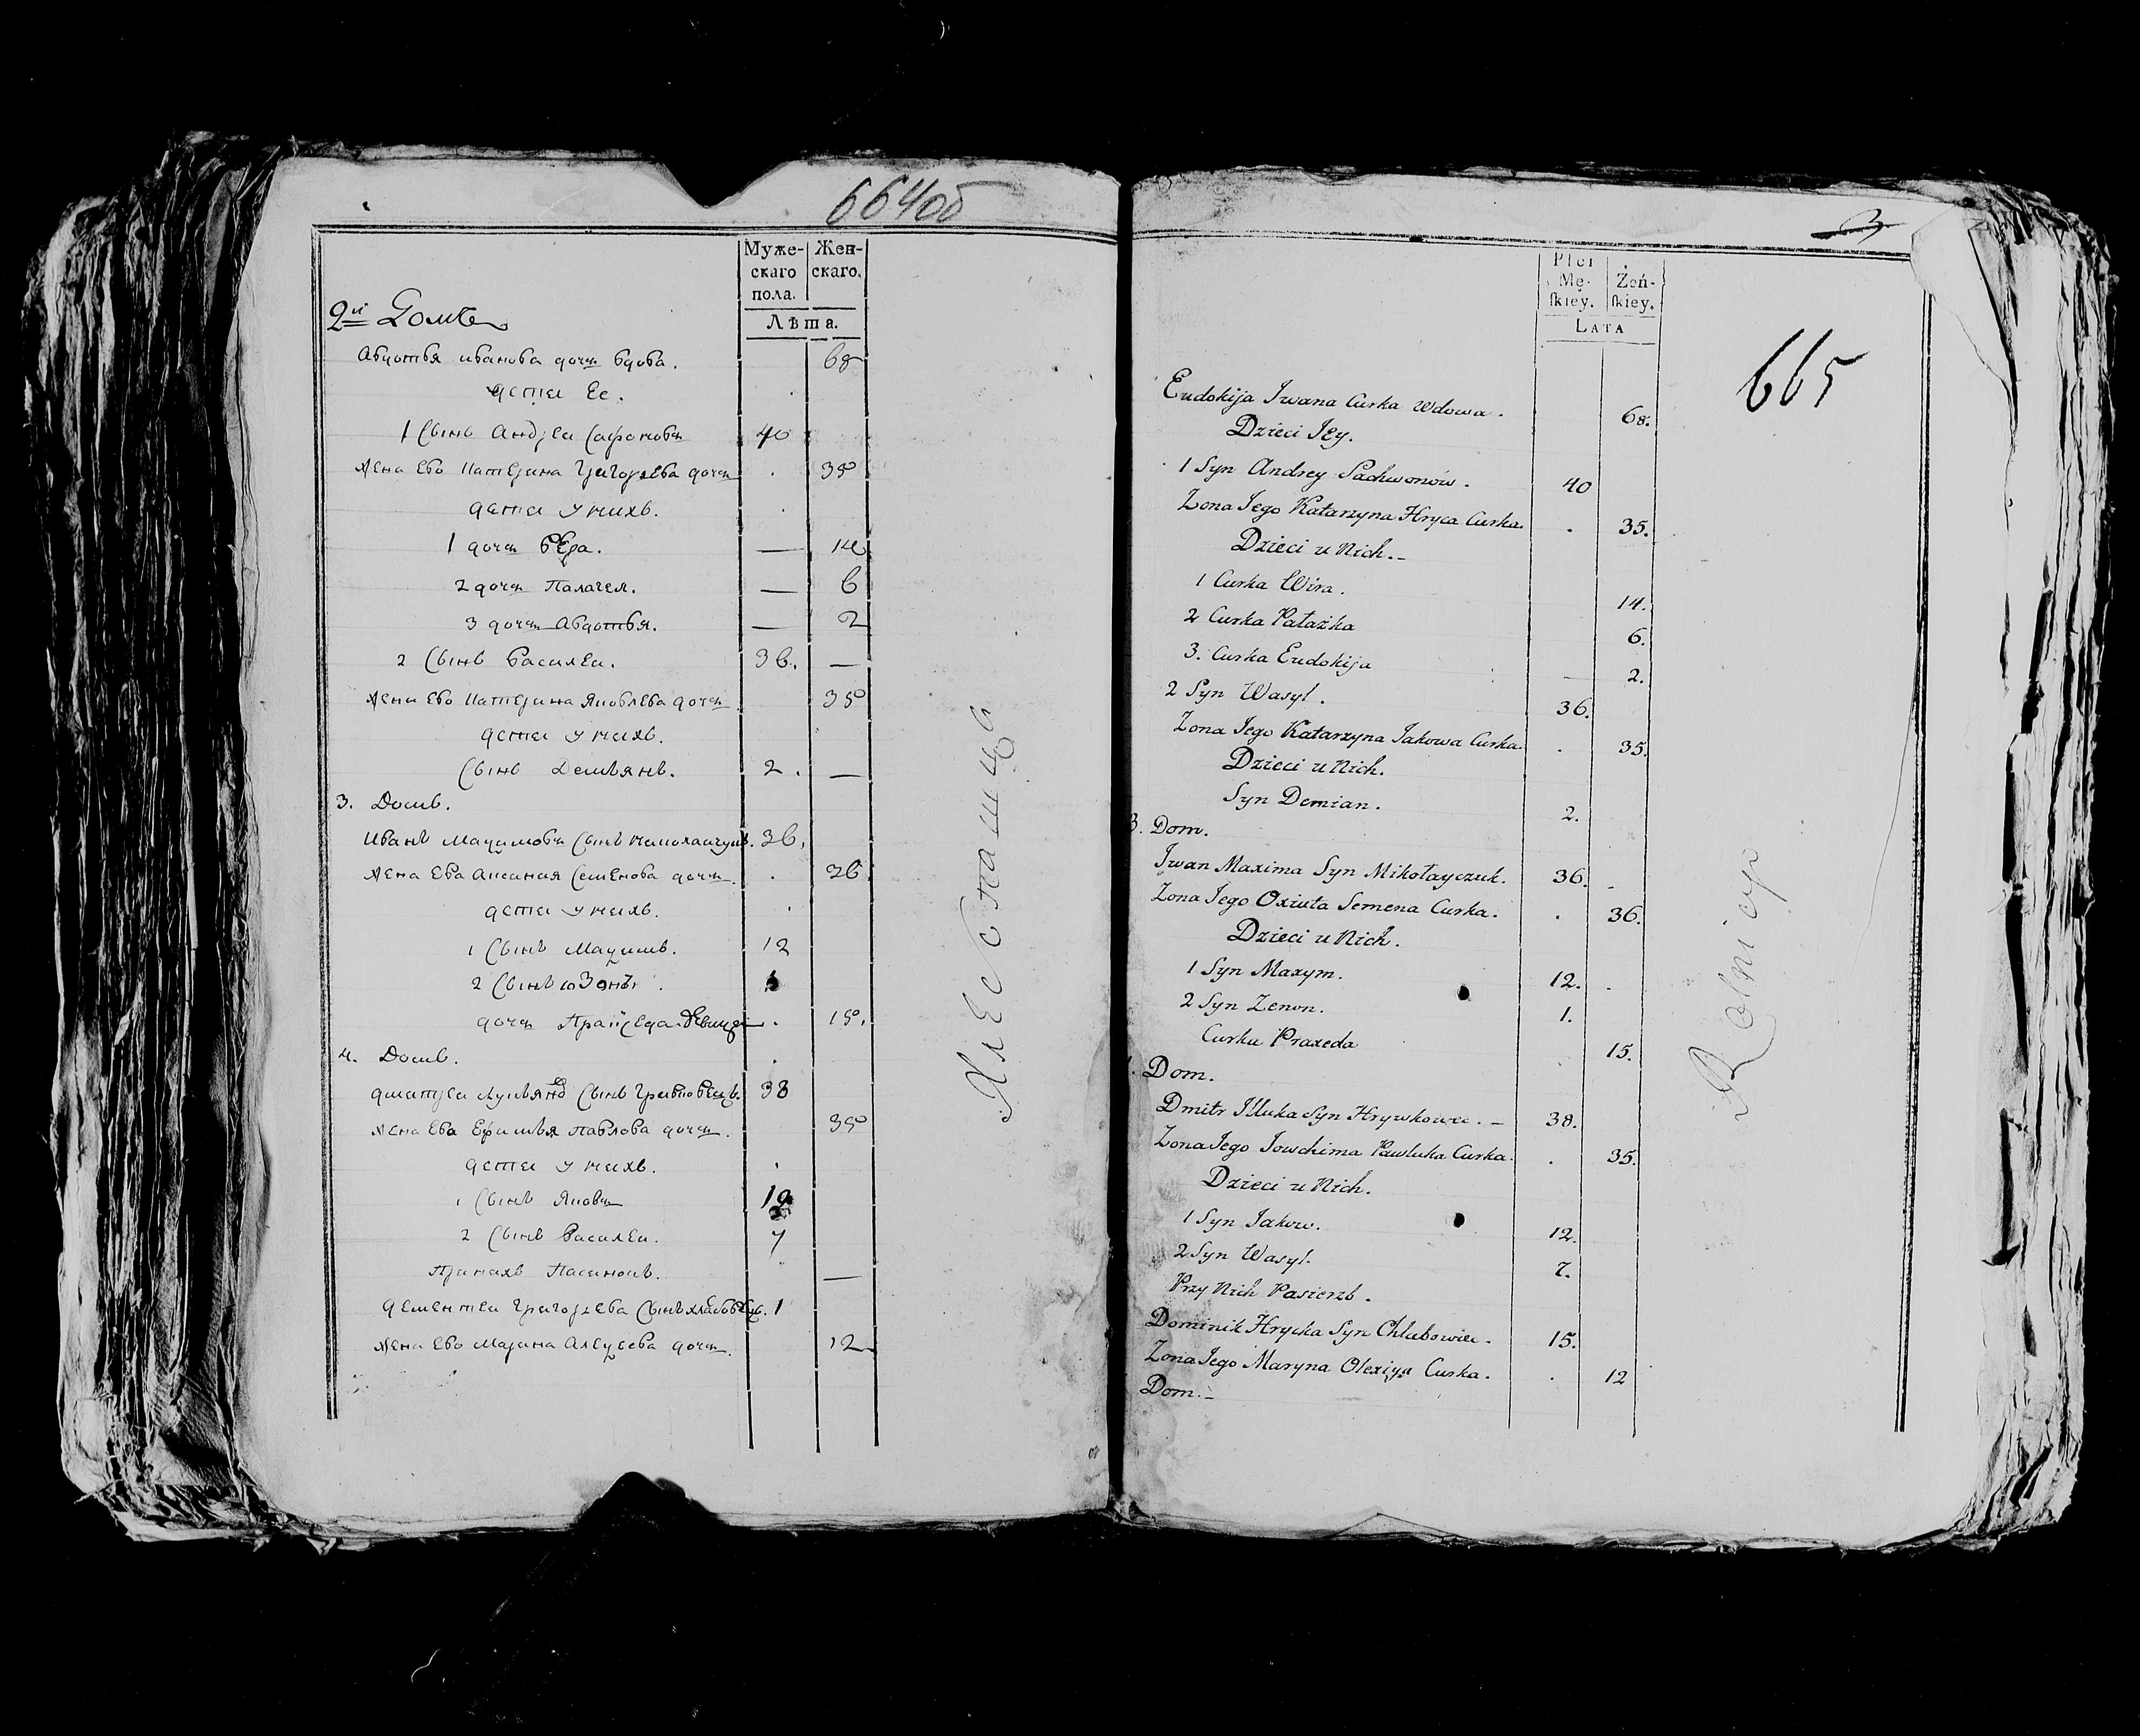 664об
Муже- Жен-
скаго скаго.
пола.
Лѣта.
2й Домъ
Авдотья иванова дочь вдова. 68
дети Ее.
1 Сынъ Андреи Сафоновъ 40
жена Ево Катерина Григорьева дочь 35
дети у нихъ.
1 дочь вЕра. — 14
2 дочь Палагея. — 6
3 дочь Авдотья. — 2
2 Сынъ Василеи. 36. —
жена Ево Катерина Яковлева дочь 35
дети у нихъ.
Сынъ Демьянъ. 2. —
3. Домъ.
Иванъ Мақимовъ Сынъ николайчукъ. 36.
жена Ева Аксиния Семенова дочь. 36
дети у нихъ.
1 Сынъ Мақимъ. 12
2 Сынъ
дочь Пракседа девица. 15.
4. Домъ.
дмитреи Сынъ 38
жена Ева Ефимья Павлова дочь. 35
дети у нихъ.
1 Сынъ Яковъ 12
2 Сынъ Василеи. 7
При нихъ Пасинокъ. —
дементеи Григорьева Сынъ 1
жена Ево Марина Алеқсева дочь. 12
Хлебопашцы
665
Płci
Mę- Żeń-
ſkiey. ſkiey.
LATA
Eudokija Iwana Curka Wdowa. 68.
Dzieci Jey.
1 Syn Andrey Sachwonów. 40
Zona Jego Katarzyna Hryca Curka. 35.
Dzieci u Nich.-
1 Curka Wira. 14.
2 Curka Pałażka 6.
3. Curka Eudokija 2.
2 Syn Wasyl. 36.
Zona Jego Katarzyna Jakowa Curka. 35.
Dzieci u Nich.
Syn Demian. 2.
3. Dom.
Iwan Maxima Syn Mikołayczuk. 36.
Zona Jego Oxiuta Semena Curka. 36.
Dzieci u Nich.
1 Syn Maxym. 12.
2 Syn Zenon. 1.
Curka Praxeda 15.
Dom.
Dmitr Illuka Syn Hrywkowiec.- 38.
Zona Jego Jowchima Pawluka Curka. 35.
Dzieci u Nich.
1 Syn Jakow. 12.
2 Syn Wasyl. 7.
Przy Nich Pasierzb.
Dominik Hrycka Syn Chlubowiec. 15.
Zona Jego Maryna Olexiya Curka. 12
Dom.-
Rolnicy